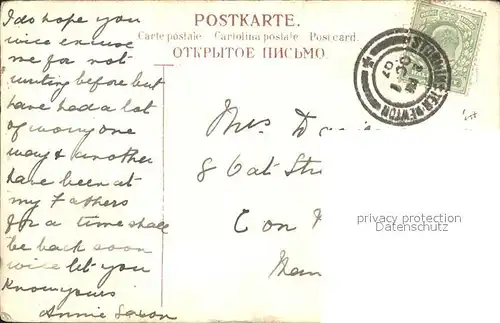 I do hope you
will excuse
me for not
writing before but
have had a lot
of worry one
way & another
have been at
my Fathers
for a time shall
be back soon
will let you
know yours
Annie
POSTKARTE.
Carte postale Cartolina postale Post card.
ОТКРЫТОЕ ПИСЬМО.
STURMINSTER NEWTON
07
Mrs
8 Oat
Con
privacy protection
Datenschutz